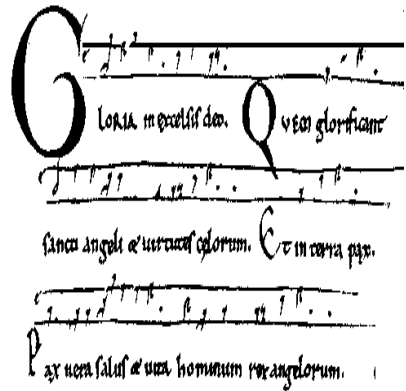 GLORIA in excelsis deo. QVEM glorificant
sancti angeli & uirtutes celorum. ET in terra pax.
PAX uera salus & uita hominum rex angelorum.